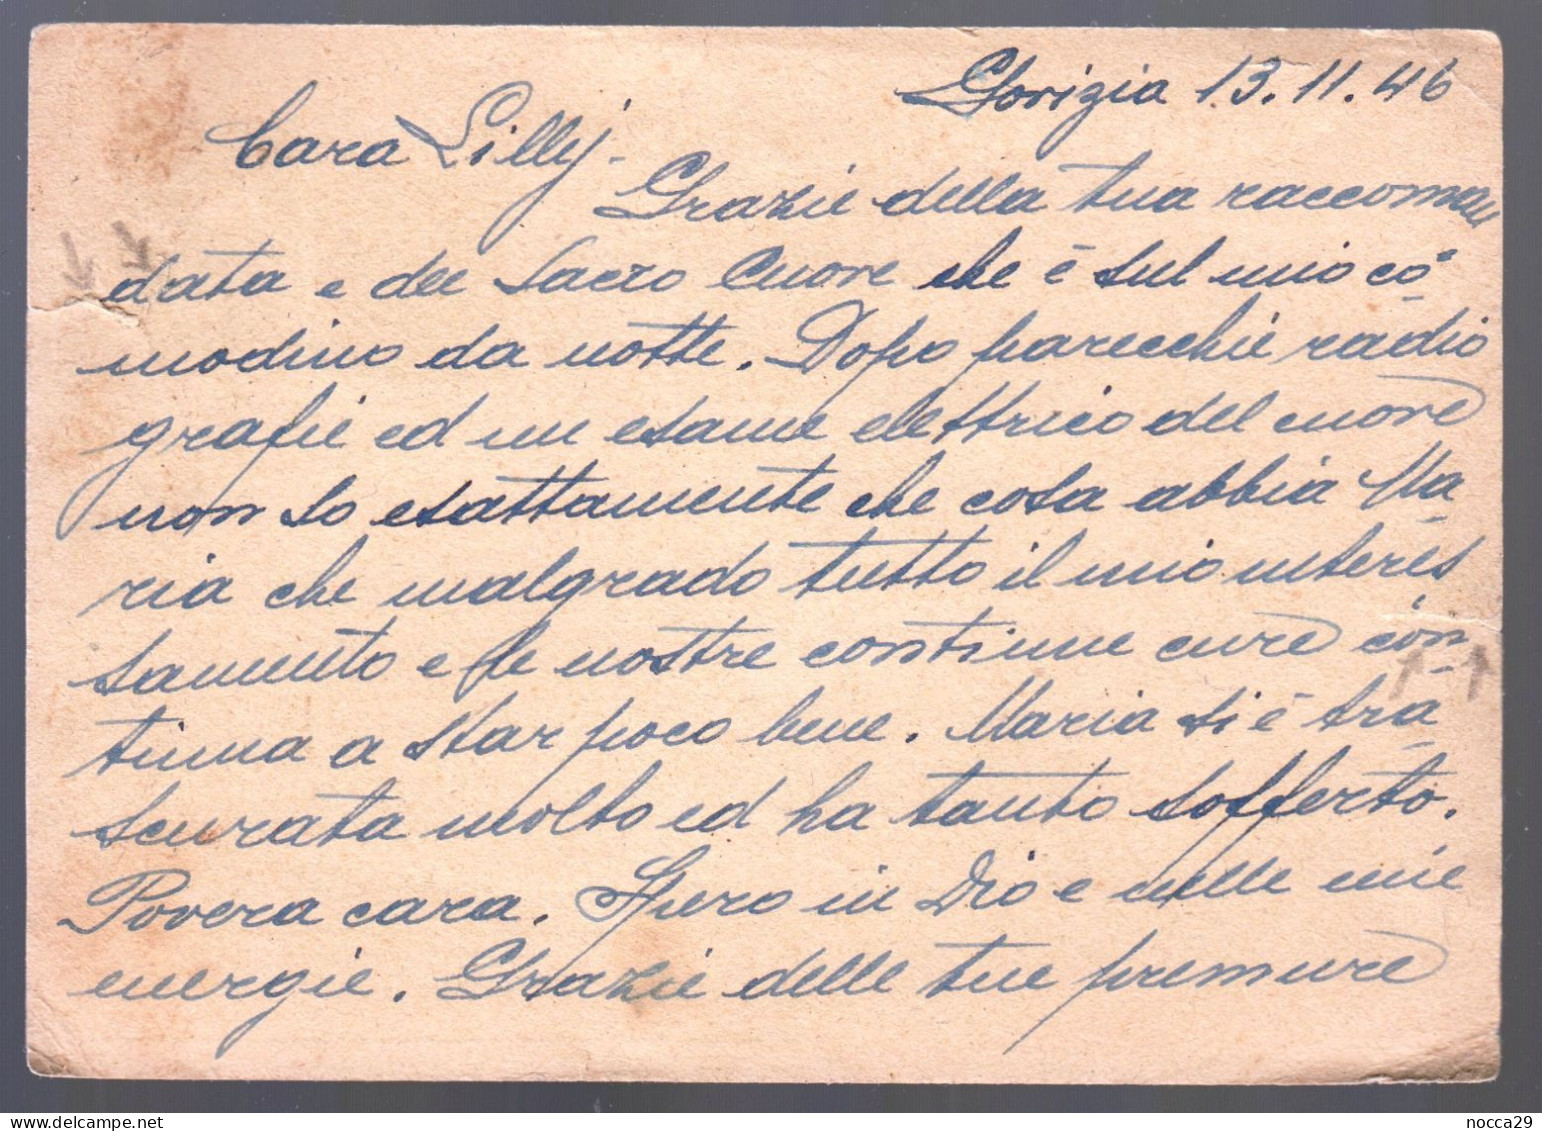 Gorizia 13.11.46
Cara Lilly -
Grazie della tua raccoman
data e del Sacro Cuore che è sul mio co-
modino da notte. Dopo parecchie radio
grafie ed un esame elettrico del cuore
non so esattamente che cosa abbia Ma-
ria che malgrado tutto il mio interes
samento e le nostre continue cure con-
tinua a star poco bene. Maria si è tra-
scurata molto ed ha tanto sofferto.
Povera cara. Spero in Dio e nelle mie
energie. Grazie delle tue premure
nocca29